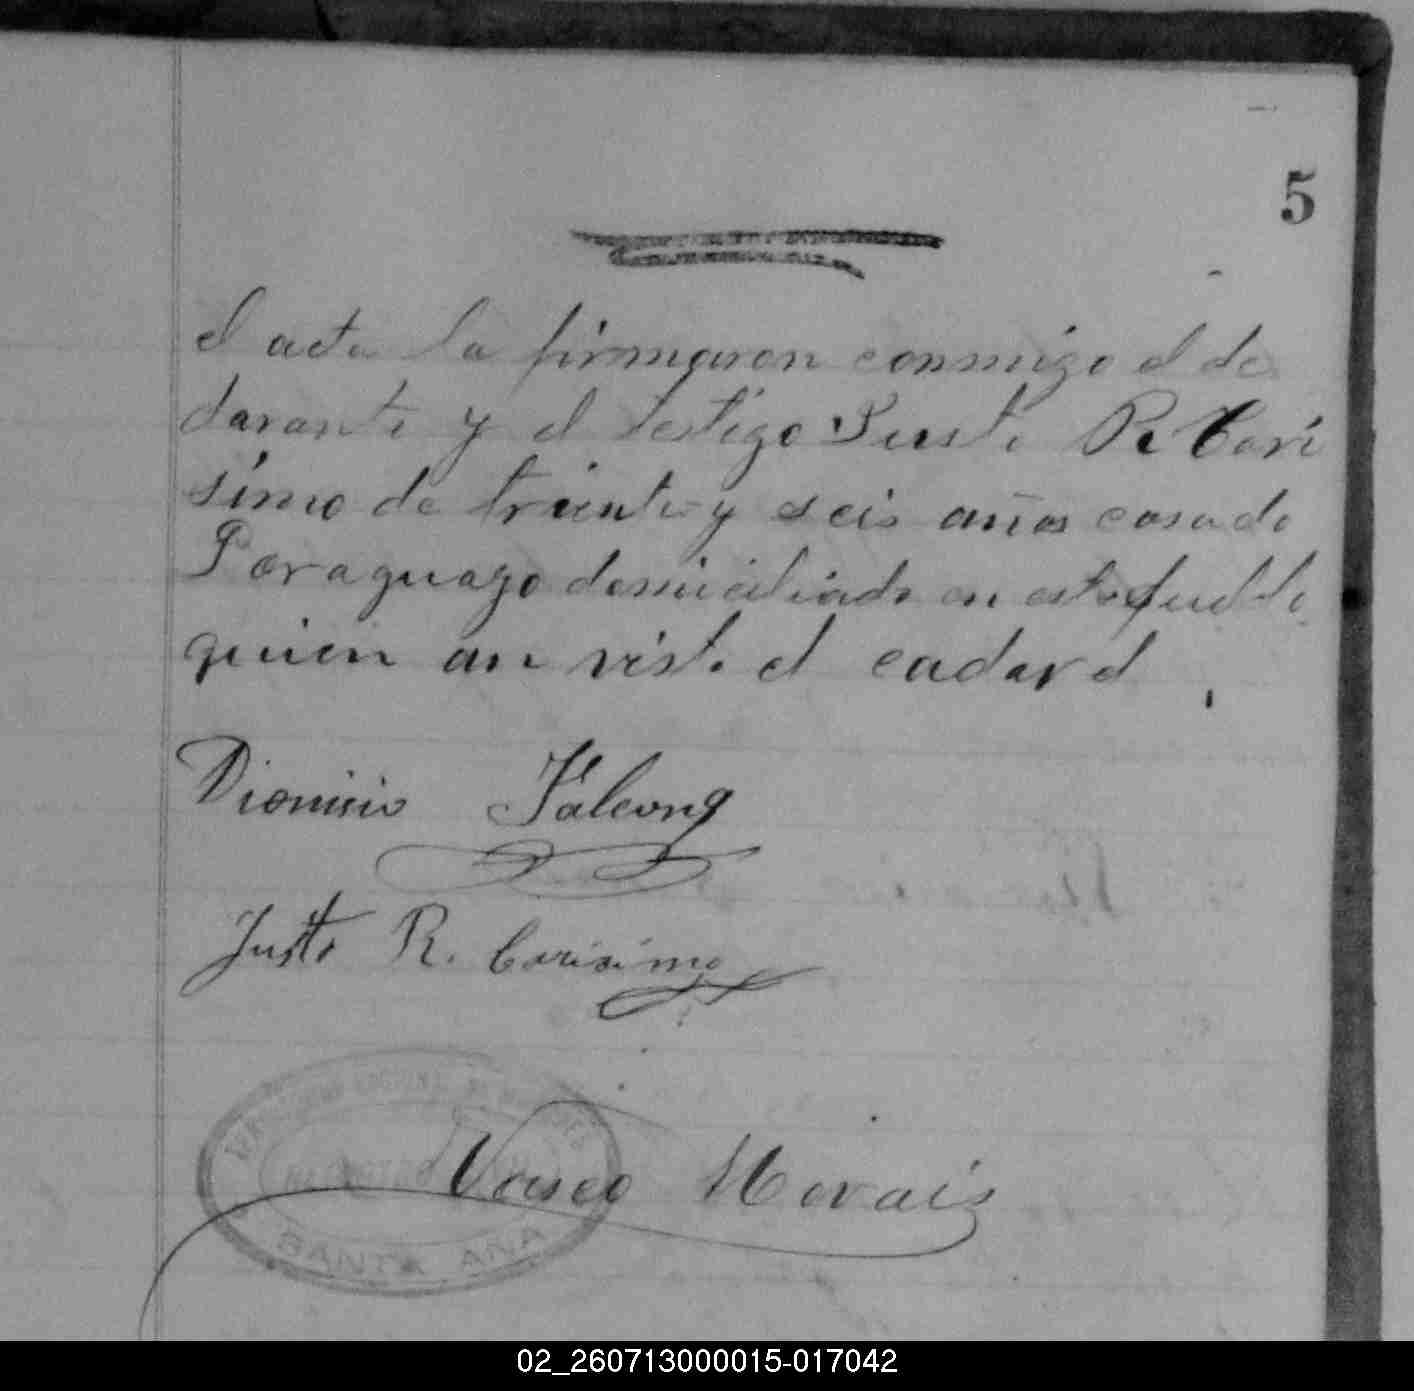 5
el acta la firmaron conmigo el de
clarante y el testigo Justo R Cari
simo de trienta y seis años casado
Paraguayo domiciliado en este pueblo
quien an visto el cadavel
Dionicio Falcong
Justo R. Carisimo
Vasco Morais
SANTA ANA
02_260713000015-017042